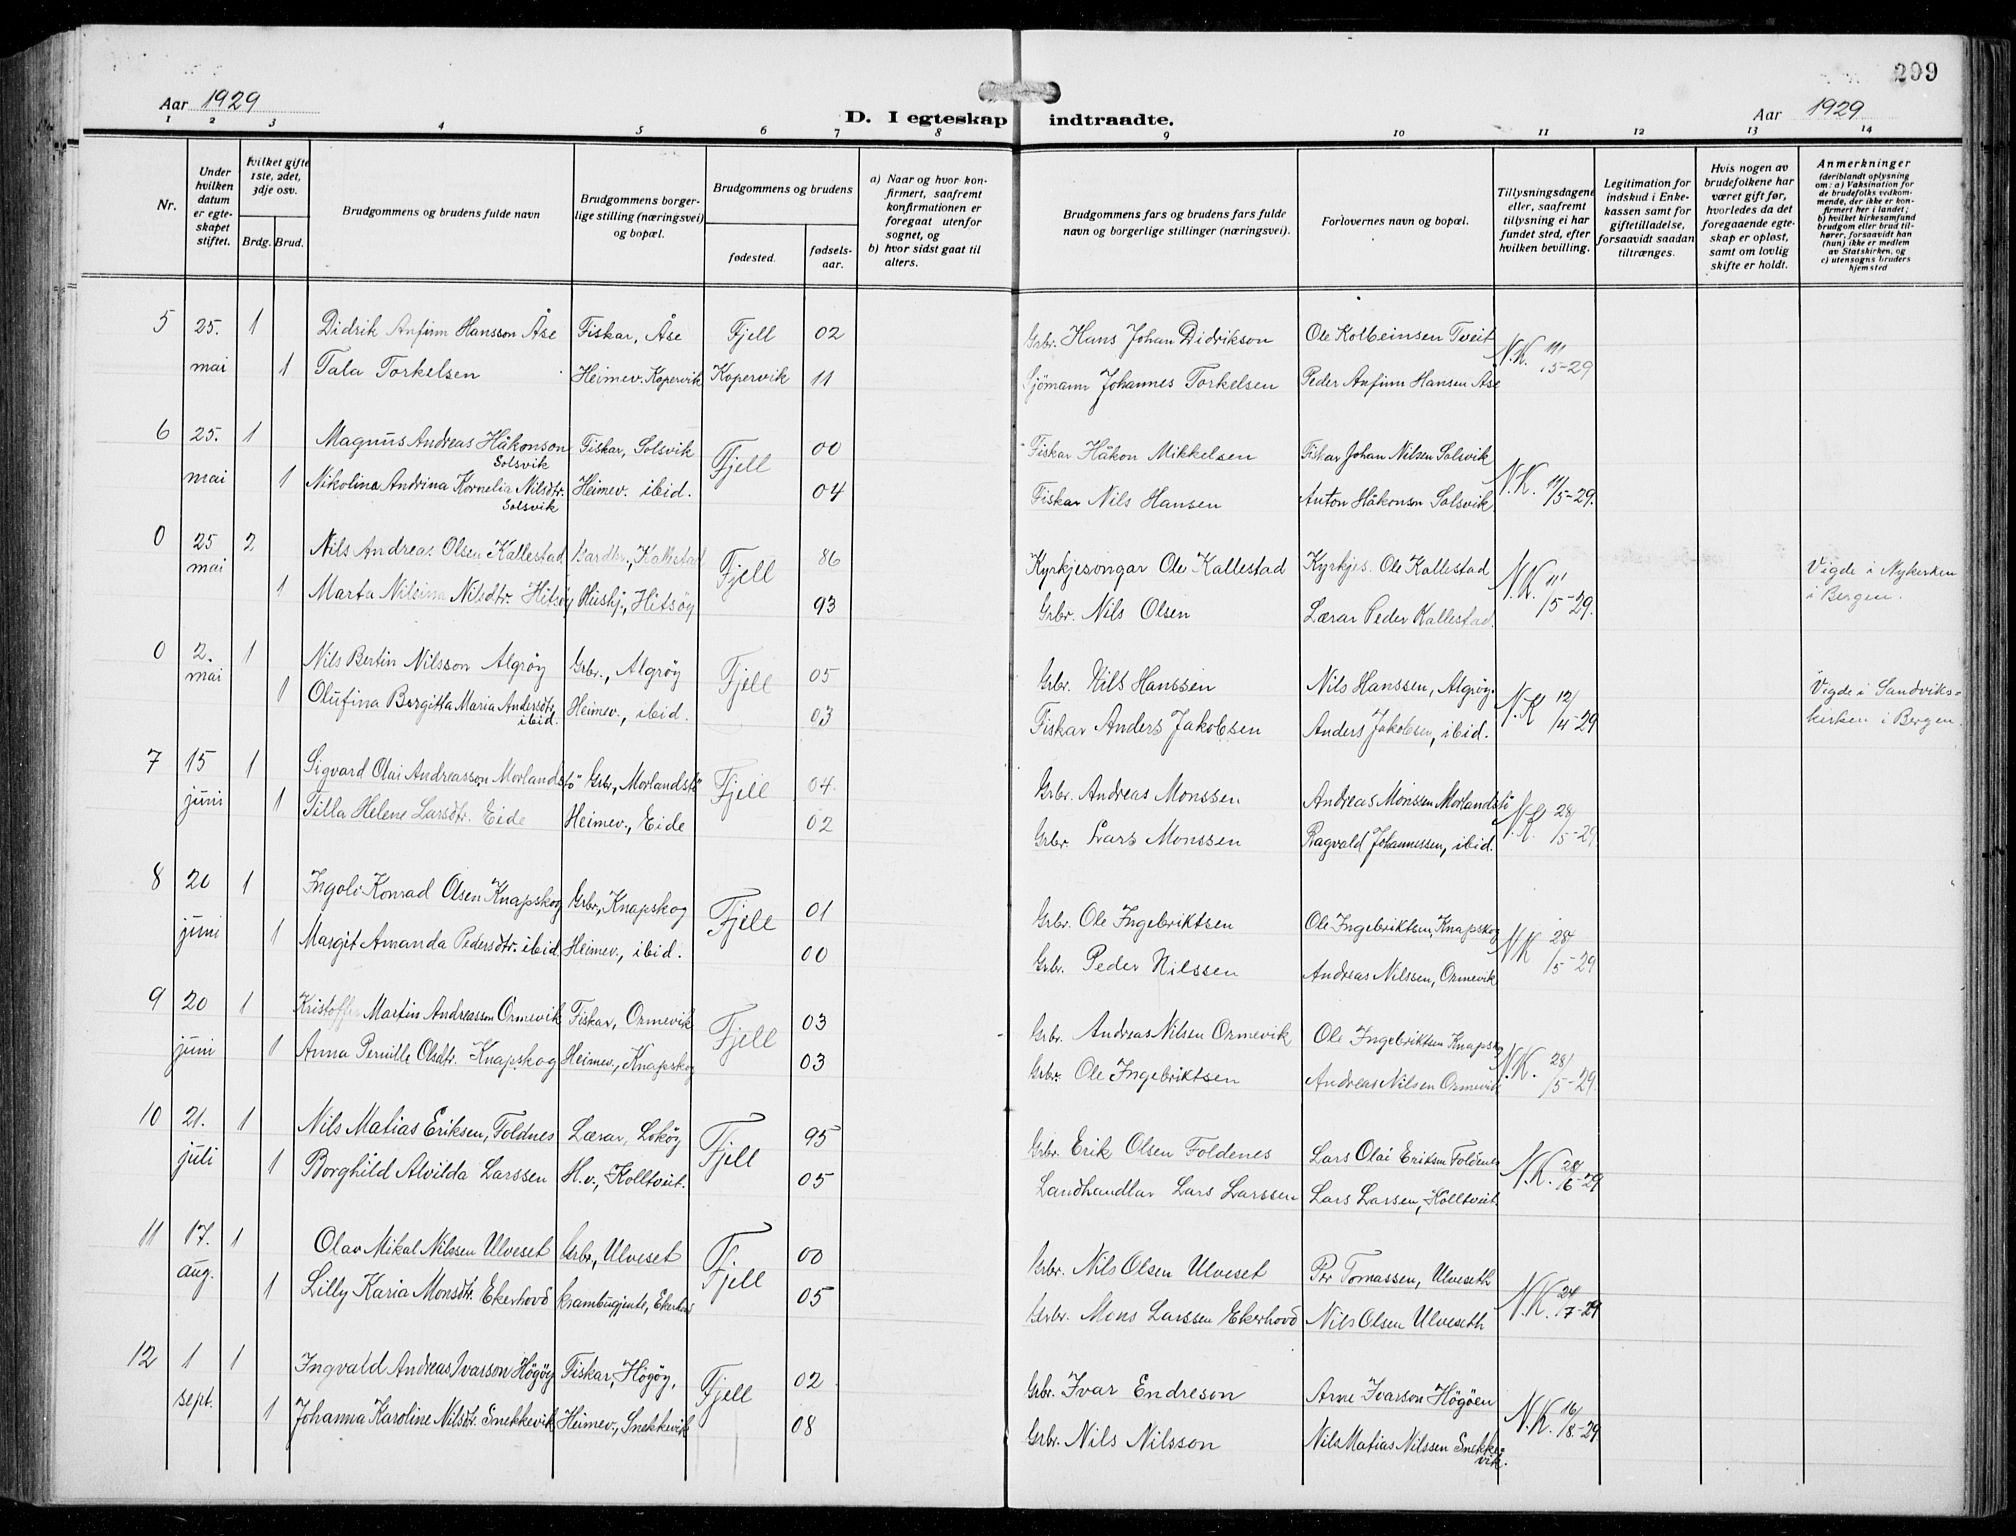 209
Aar 1929
D. I egteskap indtraadte.
Aar 1929
1 2 3 4 5 6 7 8 9 10 11 12 13 14
Nr.
Under hvilken datum er egteskapet stiftet.
Hvilket gifte 1ste, 2det, 3dje osv.
Brdg. Brud.
Brudgommens og brudens fulde navn
Brudgommens borgerlige stilling (næringsvei) og bopæl.
Brudgommens og brudens
fødested.
fødselsaar.
a) Naar og hvor konfirmert, saafremt konfirmationen er foregaat utenfor sognet, og
b) hvor sidst gaat til alters.
Brudgommens fars og brudens fars fulde navn og borgerlige stillinger (næringsvei).
Forlovernes navn og bopæl.
Tillysningsdagene eller, saafremt tillysning ei har fundet sted, efter hvilken bevilling.
Legitimation for indskud i Enkekassen samt for giftetilladelse, forsaavidt saadan tiltrænges.
Hvis nogen av brudefolkene har været gift før, hvorledes da det foregaaende egteskap er opløst, samt om lovlig skifte er holdt.
Anmerkninger
(deriblandt oplysning om: a) Vaksination for de brudefolks vedkommende, der ikke er konfirmert her i landet;
b) hvilket kirkesamfund brudgom eller brud tilhører, forsaavidt han (hun) ikke er medlem av Statskirken, og
c) utensogns bruders hjemsted
5 25. 1 Didrik Anfinn Hansson Åse Fiskar, Åse Fjell 02 Grbr. Hans Johan Didrikson Ole Kolbeinsen Tveit N.K. 11/5-29
mai 1 Tala Torkelsen Heimev. Kopervik Kopervik 11 Sjömann Johannes Torkelsen Peder Anfinn Hansen Åse
6 25. 1 Magnus Andreas Håkonson Solsvik Fiskar, Solsvik Fjell 00 Fiskar Håkon Mikkelsen Fiskar Johan Nilsen Solsvik N.K. 11/5-29.
mai 1 Nikolina Andrina Kornelia Nilsdtr. Solsvik Heimev. ibid. 04 Fiskar Nils Hansen Anton Håkonson Solsvik
0 25 2 Nils Andreas Olsen Kallestad Kallestad Fjell 86 Kyrkjesongar Ole Kallestad Kyrkjes. Ole Kallestad N.K. 11/5-29. Vigde i Nykerken i Bergen.
mai 1 Marta Nilsina Nilsdtr. Hitsøy Hushj., Hitsøy 93 Grbr. Nils Olsen Lærar Peder Kallestad.
0 2. 1 Nils Bertin Nilsson Algrøy Grbr., Algrøy Fjell 05 Grbr. Nils Hanssen Nils Hanssen, Algrøy. N.K 12/4-29 Vigde i Sandvikskirken i Bergen.
mai 1 Olufina Bergitta Maria Andersdtr. ibid. Heimev., ibid. 03 Fiskar Anders Jakobsen Anders Jakobsen, ibid.
7 15 1 Sigvard Olai Andreasson Morlandstö Grbr., Morlandstö Fjell 04 Grbr. Andreas Monssen Andreas Monssen Morlandstö N.K. 28/5-29
juni 1 Tilla Helene Larsdtr. Eide Heimev., Eide 02 Grbr. Lars Monssen Ragvald Johannessen, ibid.
8 20 1 Ingolf Konrad Olsen Knapskog Grbr., Knapskog Fjell 01 Grbr. Ole Ingebriktsen Ole Ingebriktsen, Knapskog NK 28/5-29
juni 1 Margit Amanda Pedersdtr. ibid Heimev., ibid. 00 Grbr. Peder Nilssen Andreas Nilssen, Ormevik
9 20 1 Kristoffer Martin Andreasson Ormevik Fiskar, Ormevik Fjell 03 Grbr. Andreas Nilsen Ormevik Ole Ingebriktsen Knapskog N.K. 28/5-29.
juni 1 Anna Pernille Olsdtr. Knapskog Heimev., Knapskog 03 Grbr. Ole Ingebriktsen Andreas Nilsen Ormevik
10 21. 1 Nils Matias Eriksen, Foldnes Lærar, Lokøy Fjell 95 Grbr. Erik Olsen Foldenes Lars Olai Eriksen Foldenes N.K. 28/6-29
juli 1 Borghild Alvilda Larssen H.v., Kolltveit. 05 Landhandlar Lars Larssen Lars Larsen, Kolltveit
11 17. 1 Olav Mikal Nilssen Ulveset Grbr., Ulveset Fjell 00 Grbr. Nils Olsen Ulveset Per Tomassen, Ulveseth N.K. 24/7-29
aug. 1 Lilly Karia Monsdtr. Ekerhovd krambugjente, Ekerhovd 05 Grbr. Mons Larssen Ekerhovd Nils Olsen Ulveseth
12 1 1 Ingvald Andreas Ivarson Högöy Fiskar, Högöy, Fjell 02 Grbr. Ivar Endreson Arne Ivarson Högöen N.K. 16/8-29
sept. 1 Johanna Karoline Nilsdtr. Snekkevik Heimev., Snekkevik 08 Grbr. Nils Nilsson Nils Matias Nilssen Snekkevik.